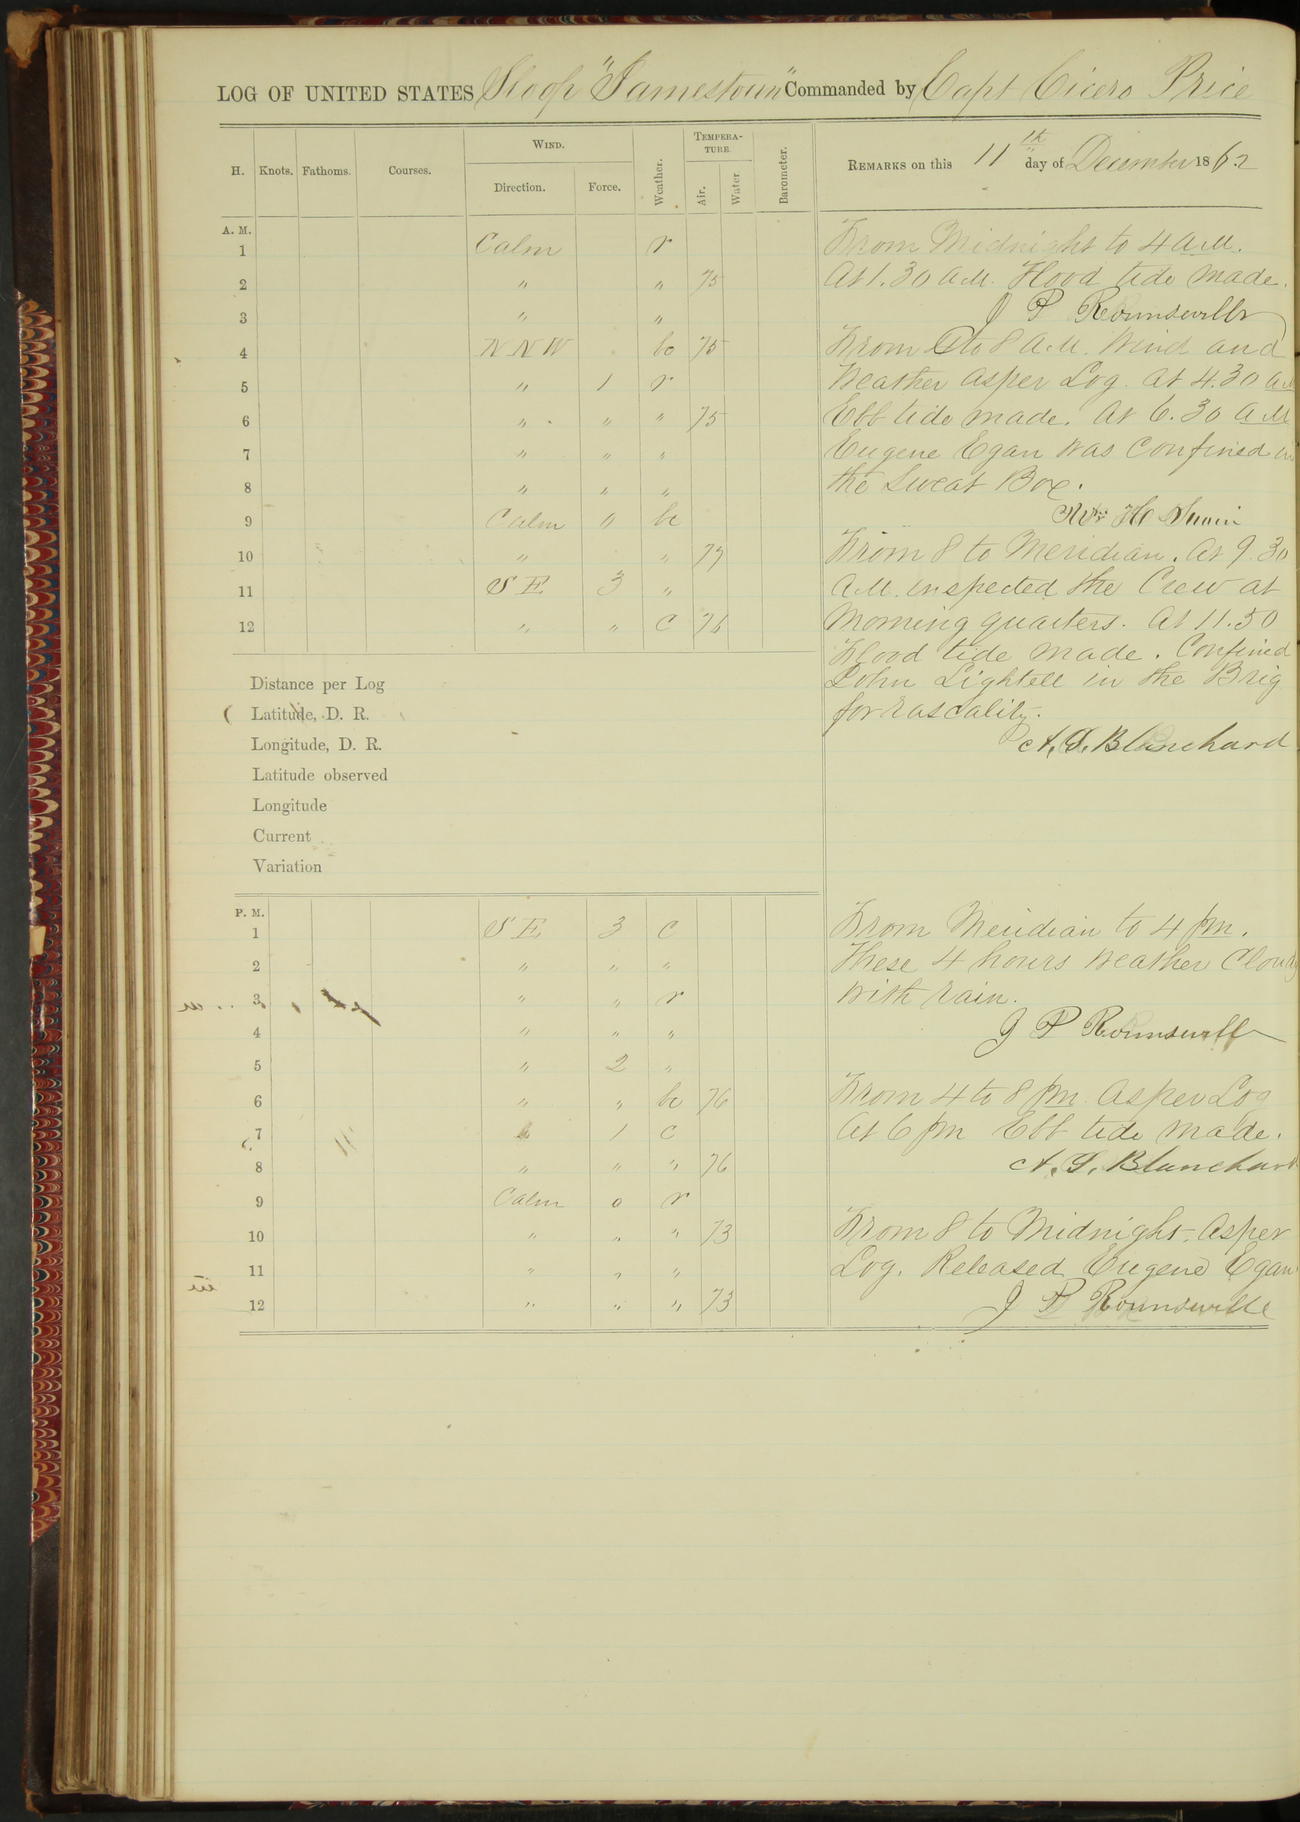 LOG OF UNITED STATES Sloop "Jamestown" Commanded by Capt Cicero Price
H. Knots. Fathoms. Courses. WIND. Direction. Force. Weather. TEMPERATURE. Air. Water Barometer. REMARKS on this 11th day of December 1862
A. M.
1 Calm r
2 " " 75
3 " "
4 N N W bc 75
5 " 1 r
6 " " " 75
7 " " "
8 " " "
9 Calm 0 bc
10 " " 77
11 S E 3 "
12 " " C 76
From Midnight to 4 A.M.
At 1.30 A.M. Flood tide made.
J P Rounsevill
From 4 to 8 A.M. Wind and
Weather asper Log. At 4.30 A.M
Ebb tide made. At 6.30 A.M
Eugene Egan was Confined in
the Sweat Box.
From 8 to Meridian. At 9.30
A.M. inspected the Crew at
Morning quarters. At 11.50
Flood tide made. Confined
John Lightell in the Brig
for rascality.
A. S. Blanchard
Distance per Log
Latitude, D. R.
Longitude, D. R.
Latitude observed
Longitude
Current
Variation
P. M.
1 S E 3 C
2 " " "
3 " " r
4 " " "
5 " 2 "
6 " " bc 76
7 " 1 C
8 " " " 76
9 Calm 0 r
10 " " " 73
11 " " "
12 " " " 73
From Meridian to 4 pm.
These 4 hours Weather Cloudy
With rain.
J P Rounsevill
From 4 to 8 pm asper Log
At 6 pm Ebb tide made.
A. S. Blanchard
From 8 to Midnight. Asper
Log. Released Eugene Egan
J P Rounseville